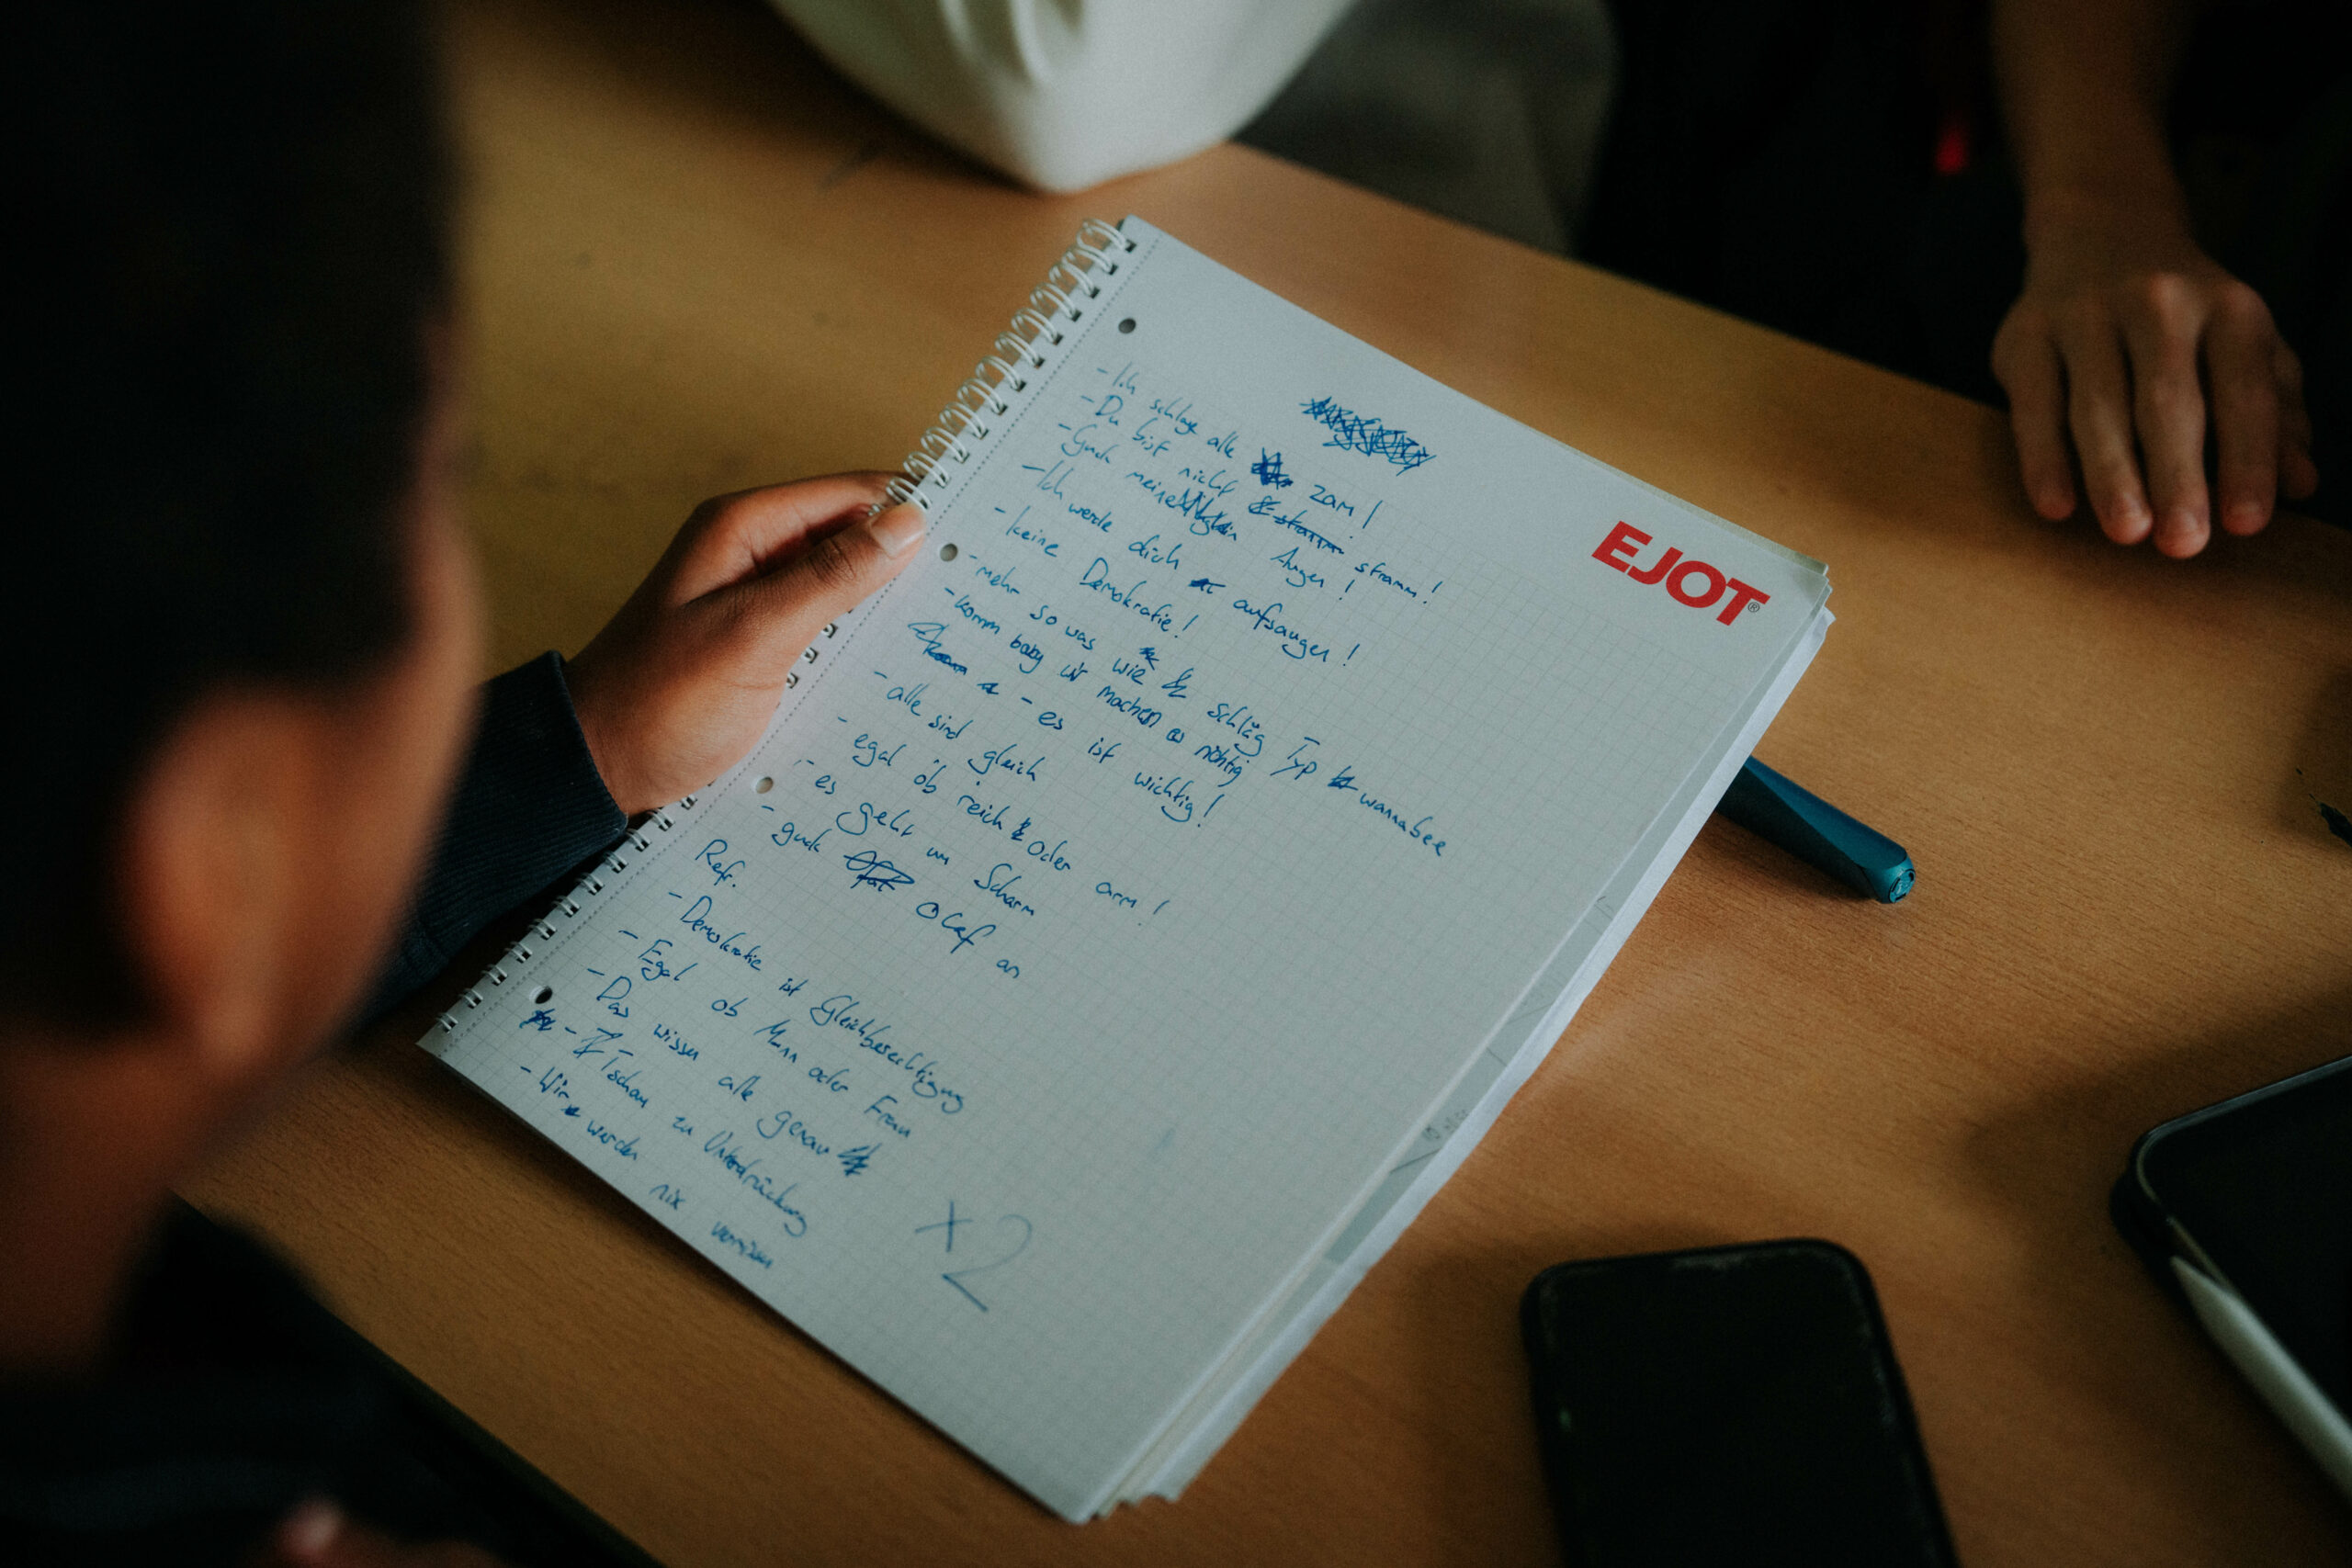 EJOT®
- Ich schlage alle zam!
- Du bist nicht stramm!
- Guck meine Augen!
- Ich werde dich aufsaugen!
- keine Demokratie!
- mehr so was wie schläg Typ wannabee
- komm baby wir machen es richtig
- es ist wichtig!
- alle sind gleich
- egal ob reich oder arm!
- es geht um Scharm
- guck Olaf an
Refr.
- Demokratie ist Gleichberechtigung
- Egal ob Mann oder Frau
- Das wissen alle genau
- Tschau zu Unterdrückung
- Wir werden nix
x2